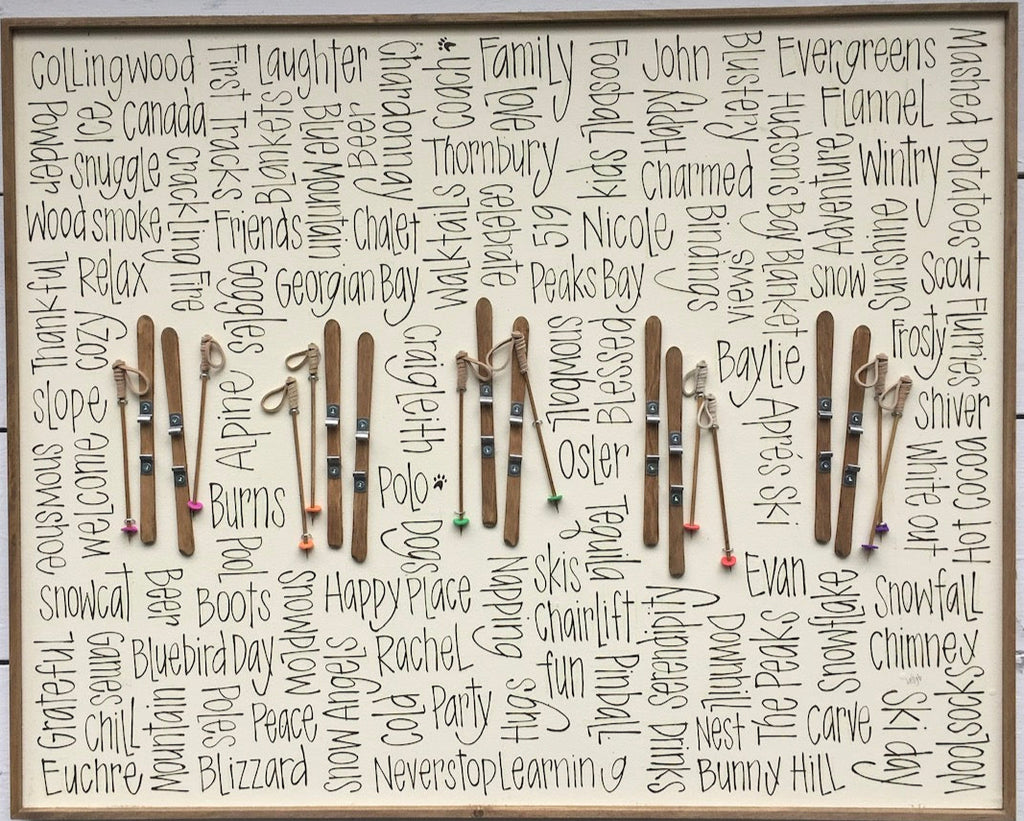 Collingwood
First Tracks
Laughter
Chardonnay
Coach
Family
Foosball
John
Blustery
Evergreens
Mashed Potatoes
Powder
Ice
Canada
Blankets
Blue Mountain
Beer
Love
Happy
Hudsons Bay Blanket
Flannel
Snuggle
Crackling Fire
Thornbury
Kids
Charmed
Adventure
Wintry
Woodsmoke
Friends
Chalet
Walktails
Celebrate
519
Nicole
Bindings
Views
Amusing
Thankful
Relax
Goggles
Georgian Bay
Peaks Bay
Snow
Scout
Cozy
Craigleith
Blessed
Baylie
Frosty
Flurries
Slope
Alpine
Après Ski
Shiver
Welcome
Burns
Polo
Osler
White out
Hot Cocoa
Pool
Dogs
Tequila
Snowcat
Beer
Boots
Snowplow
Happy Place
Napping
Skis
Chairlift
Serendipity
Evan
Snowflake
Snowfall
Grateful
Games
Bluebird Day
Snow Angels
Rachel
fun
Pinball
Downhill
The Peaks
Chimney
Chill
Mountain
Poles
Peace
Cold
Party
Hugs
Drinks
Nest
Carve
Ski day
Woolsocks
Euchre
Blizzard
Never stop Learning
Bunny Hill